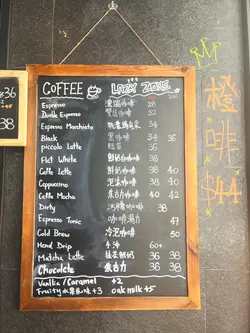 COFFEE LAZY ZONE
Espresso 濃縮咖啡 28
Double Espresso 雙份咖啡 32
Espresso Macchiato 35
Black 黑咖啡 34 36
Piccolo Latte 短笛 36
Flat White 鮮奶咖啡 38
Caffe Latte 鮮奶咖啡 38 40
Cappuccino 泡沫咖啡 38 40
Caffe Mocha 朱古力咖啡 38 42
Dirty 咖啡 38
Espresso Tonic 咖啡湯力 47
Cold Brew 冷泡咖啡 50
Hand Drip 手沖 60+
Matcha Latte 抹茶鮮奶 36 38
Chocolate 朱古力 36 38
Vanilla/Caramel +2
Fruity水果風味+3 oak milk +5
36
+5
38
橙啡
$44